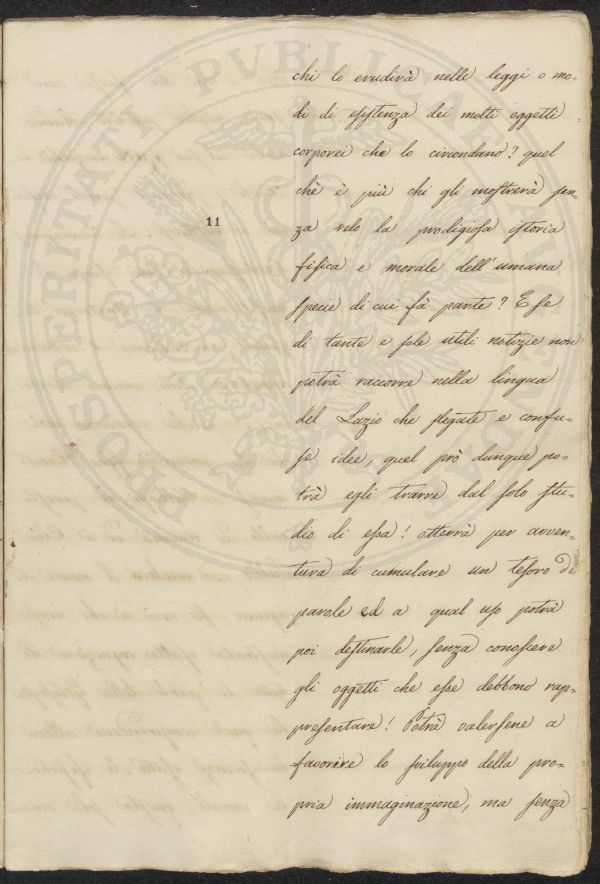 chi lo erudirà nelle leggi o mo-
di di esistenza dei molti oggetti
corporei che lo circondano? quel
chè è più chi gli mostrerà sen-
za velo la prodigiosa istoria
fisica e morale dell'umana
specie di cui fà parte? E se
di tante e sole utili notizie non
potrà raccorre nella lingua
del Lazio che slegate e confu-
se idee, qual prò dunque po-
trà egli trarre dal solo stu-
dio di essa! otterrà per avven-
tura di cumulare un tesoro di
parole ed a qual uso potrà
poi destinarle, senza conoscere
gli oggetti che esse debbono rap-
presentare! Potrà valersene a
favorire lo sviluppo della pro-
pria immaginazione, ma senza
11
PROSPERITATI PVBLICAE